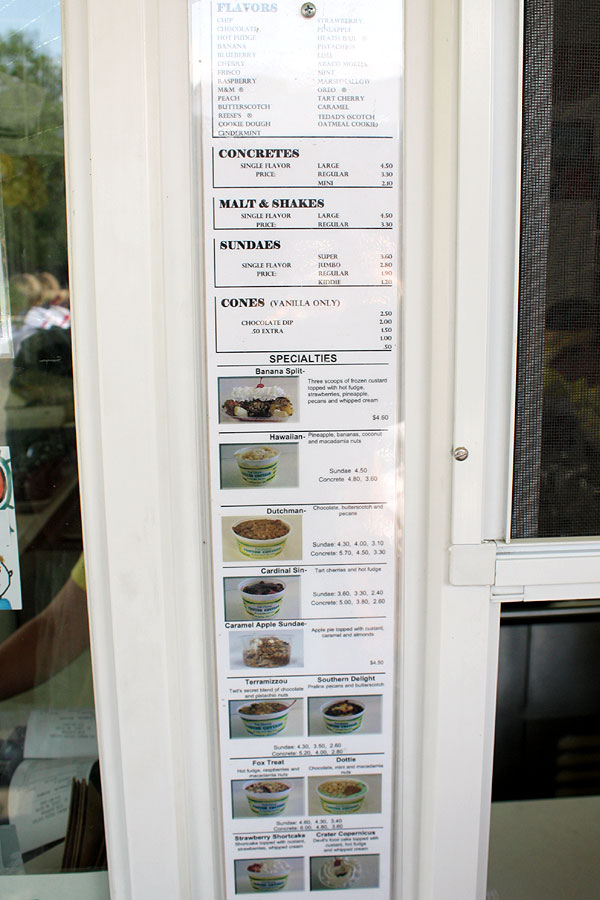 FLAVORS
CHIP STRAWBERRY
CHOCOLATE PINEAPPLE
HOT FUDGE HEATH BAR ®
BANANA PISTACHIO
BLUEBERRY
CHERRY ABACO MOCHA
FRISCO MINT
RASPBERRY MARSHMALLOW
M&M ® OREO ®
PEACH TART CHERRY
BUTTERSCOTCH CARAMEL
REESE'S ® TEDAD'S (SCOTCH
COOKIE DOUGH OATMEAL COOKIE)
CINDERMINT
CONCRETES
SINGLE FLAVOR LARGE 4.50
PRICE: REGULAR 3.30
MINI 2.10
MALT & SHAKES
SINGLE FLAVOR LARGE 4.50
PRICE: REGULAR 3.30
SUNDAES
SUPER 3.60
SINGLE FLAVOR JUMBO 2.80
PRICE: REGULAR 1.90
KIDDIE 1.20
CONES (VANILLA ONLY)
2.50
CHOCOLATE DIP 2.00
.50 EXTRA 1.50
1.00
.50
SPECIALTIES
Banana Split-
Three scoops of frozen custard
topped with hot fudge,
strawberries, pineapple,
pecans and whipped cream
$4.60
Hawaiian- Pineapple, bananas, coconut
and macadamia nuts
Sundae 4.50
Concrete: 4.80, 3.60
Dutchman- Chocolate, butterscotch and
pecans
Sundae: 4.30, 4.00, 3.10
Concrete: 5.70, 4.50, 3.30
Cardinal Sin- Tart cherries and hot fudge
Sundae: 3.60, 3.30, 2.40
Concrete: 5.00, 3.80, 2.60
Caramel Apple Sundae-
Apple pie topped with custard,
caramel and almonds
$4.50
Terramizzou Southern Delight
Ted's secret blend of chocolate Praline pecans and butterscotch
and pistachio nuts
Sundae: 4.30, 3.50, 2.60
Concrete: 5.20, 4.00, 2.80
Fox Treat Dottie
Hot fudge, raspberries and Chocolate, mint and macadamia
macadamia nuts nuts
Sundae: 4.60, 4.30, 3.40
Concrete: 6.00, 4.80, 3.60
Strawberry Shortcake Crater Copernicus
Shortcake topped with custard, Devil's food cake topped with
strawberries, whipped cream custard, hot fudge
and whipped cream